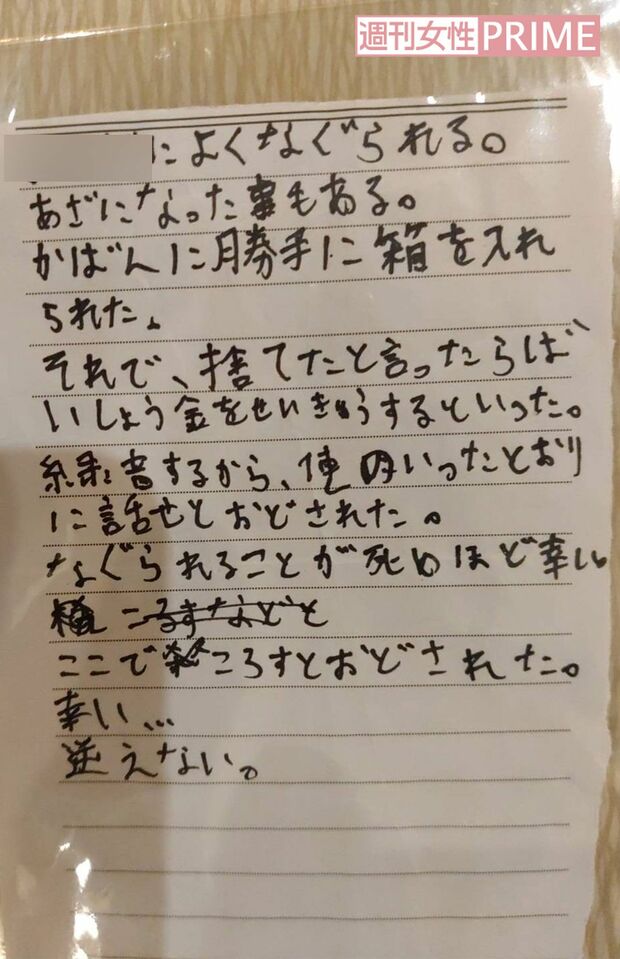 週刊女性PRIME
によくなぐられる。
あざになった事もある。
かばんに勝手に箱を入れ
られた。
それで、捨てたと言ったらば
いしょう金をせいきゅうするといった。
録音するから、俺のいったとおり
に話せとおどされた。
なぐられることが死ぬほど幸い
ころすなどと
ここでころすとおどされた。
幸い…
逆えない。